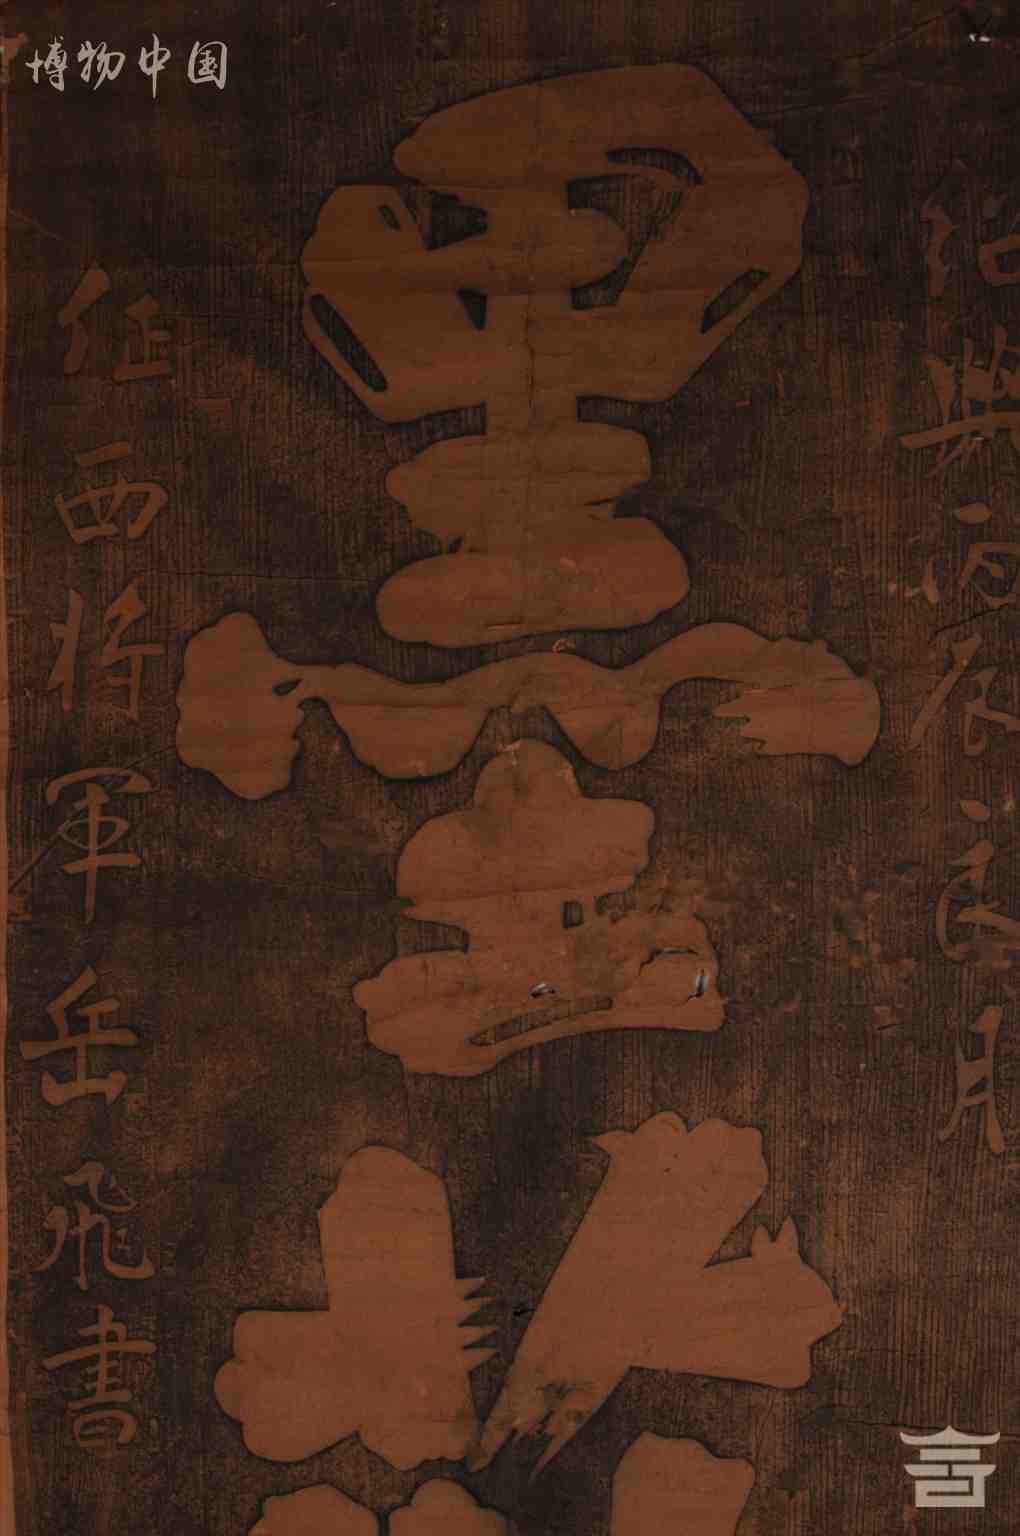 博物中国
紹興丙辰良月
墨
征西將軍岳飛書